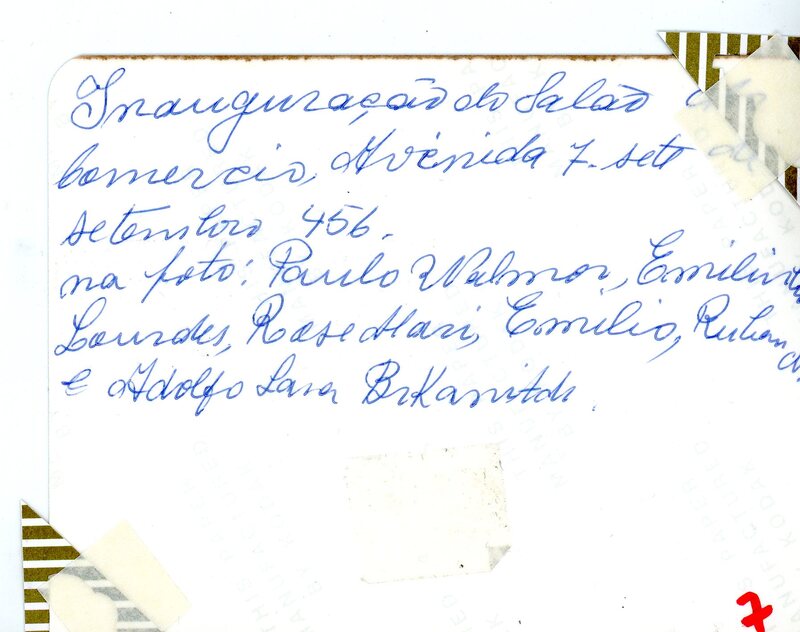 Inauguração do Salão
Comercio, Avenida 7. sete de
setembro 456.
na foto: Paulo Walmor, Emilinha
Lourdes, Rose Mari, Emilio, Ruben
e Adolfo Lara
7